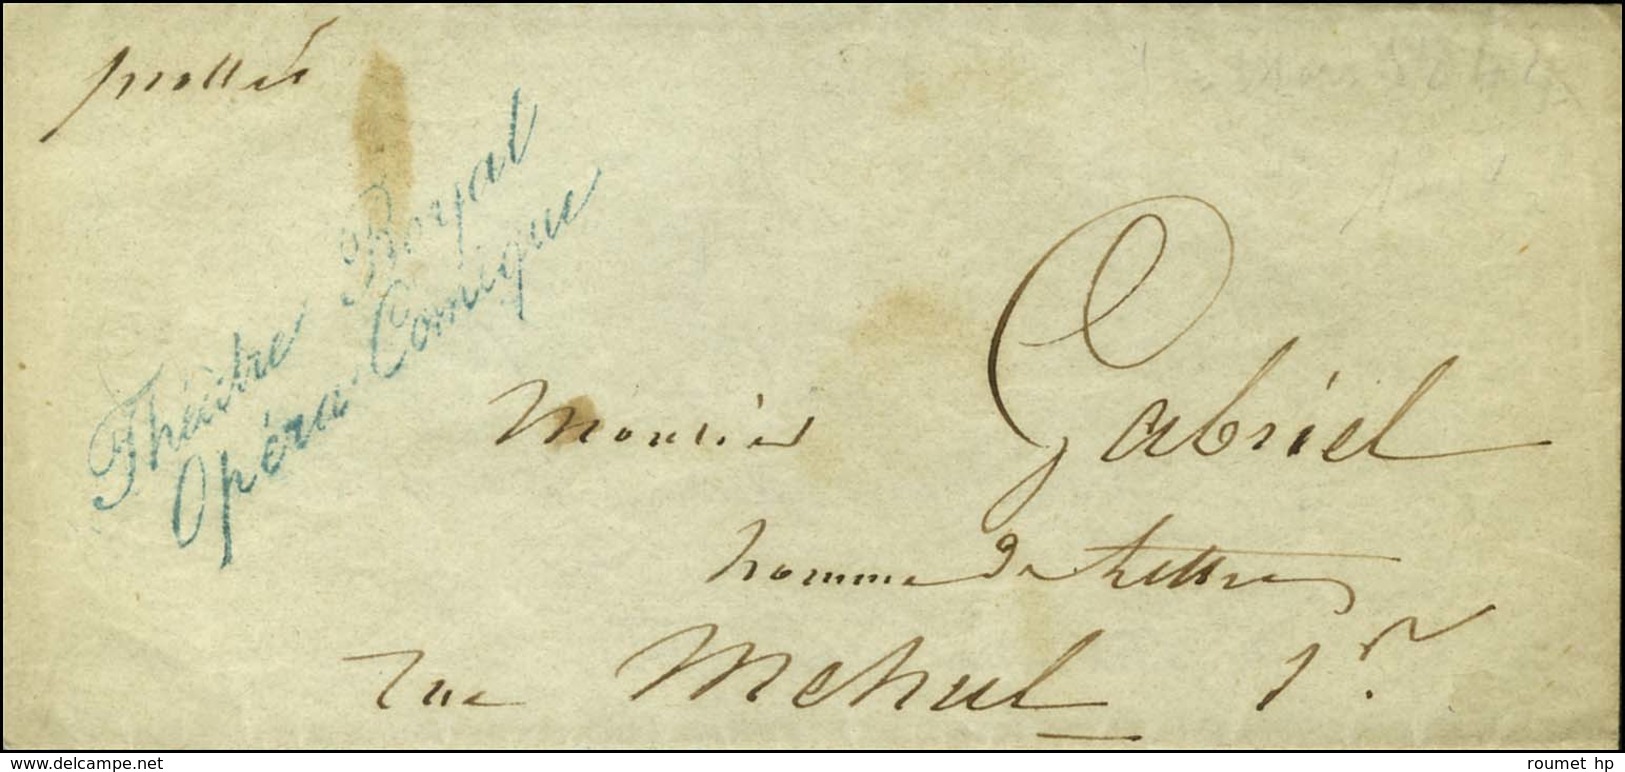 pressée
Théâtre Royal
Opéra-Comique
Monsieur
Gabriel
homme de lettres
rue Mehul 1er
delcampe.net
roumet hp